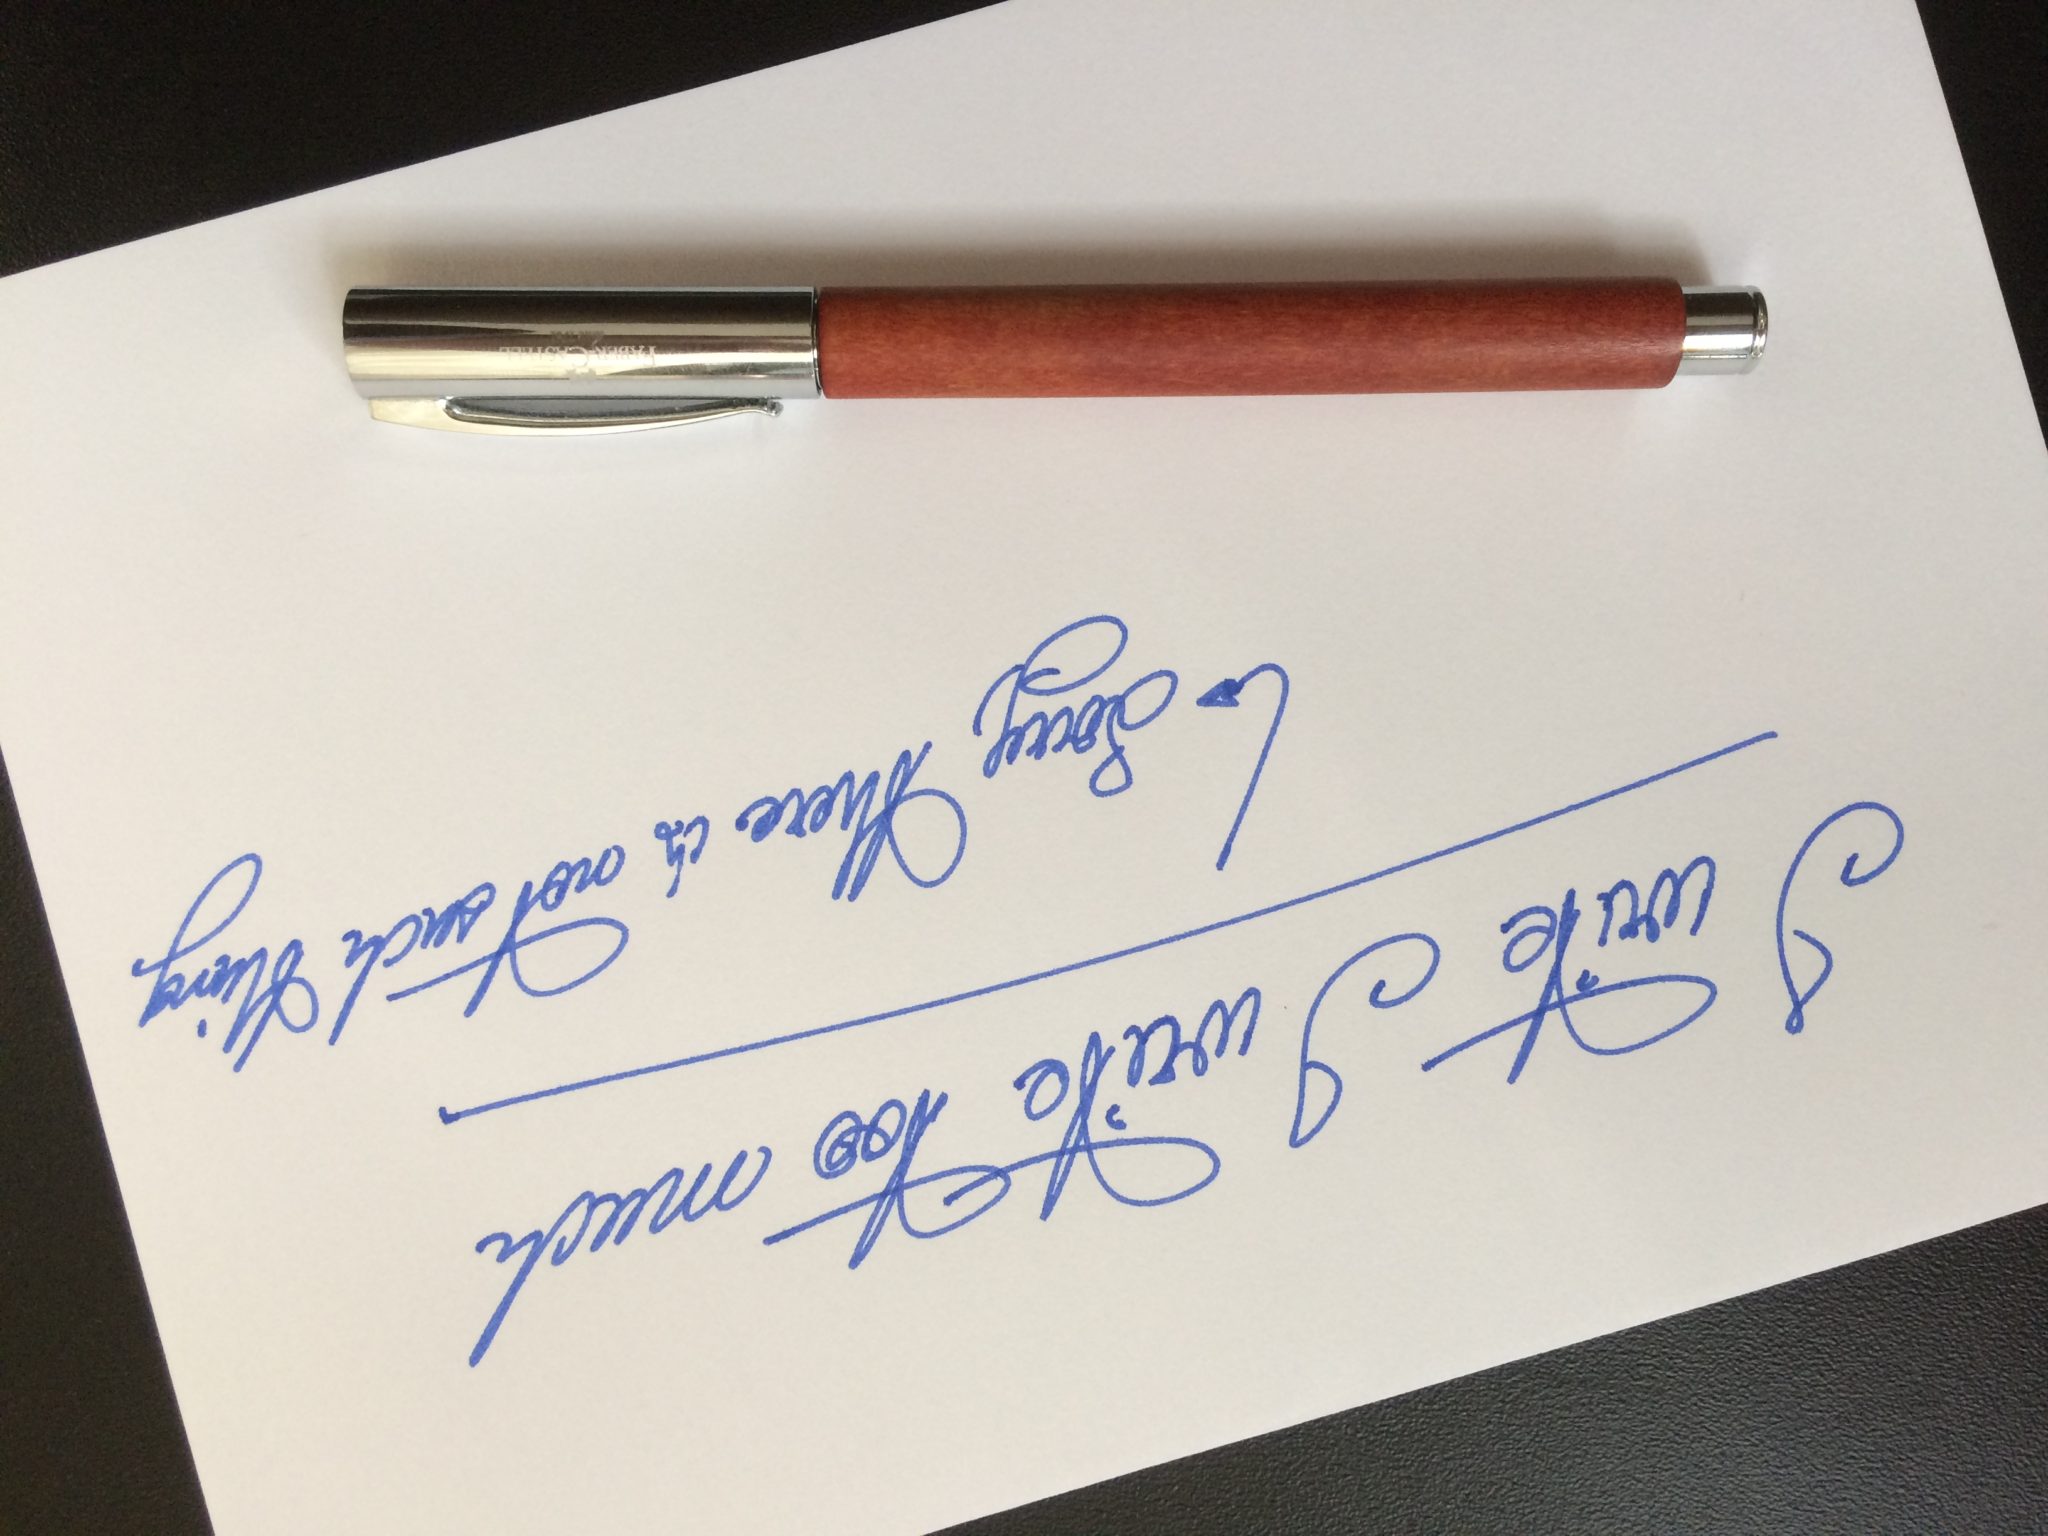 I write I write too much
↳ Sorry, there is not such thing
FABER-CASTELL